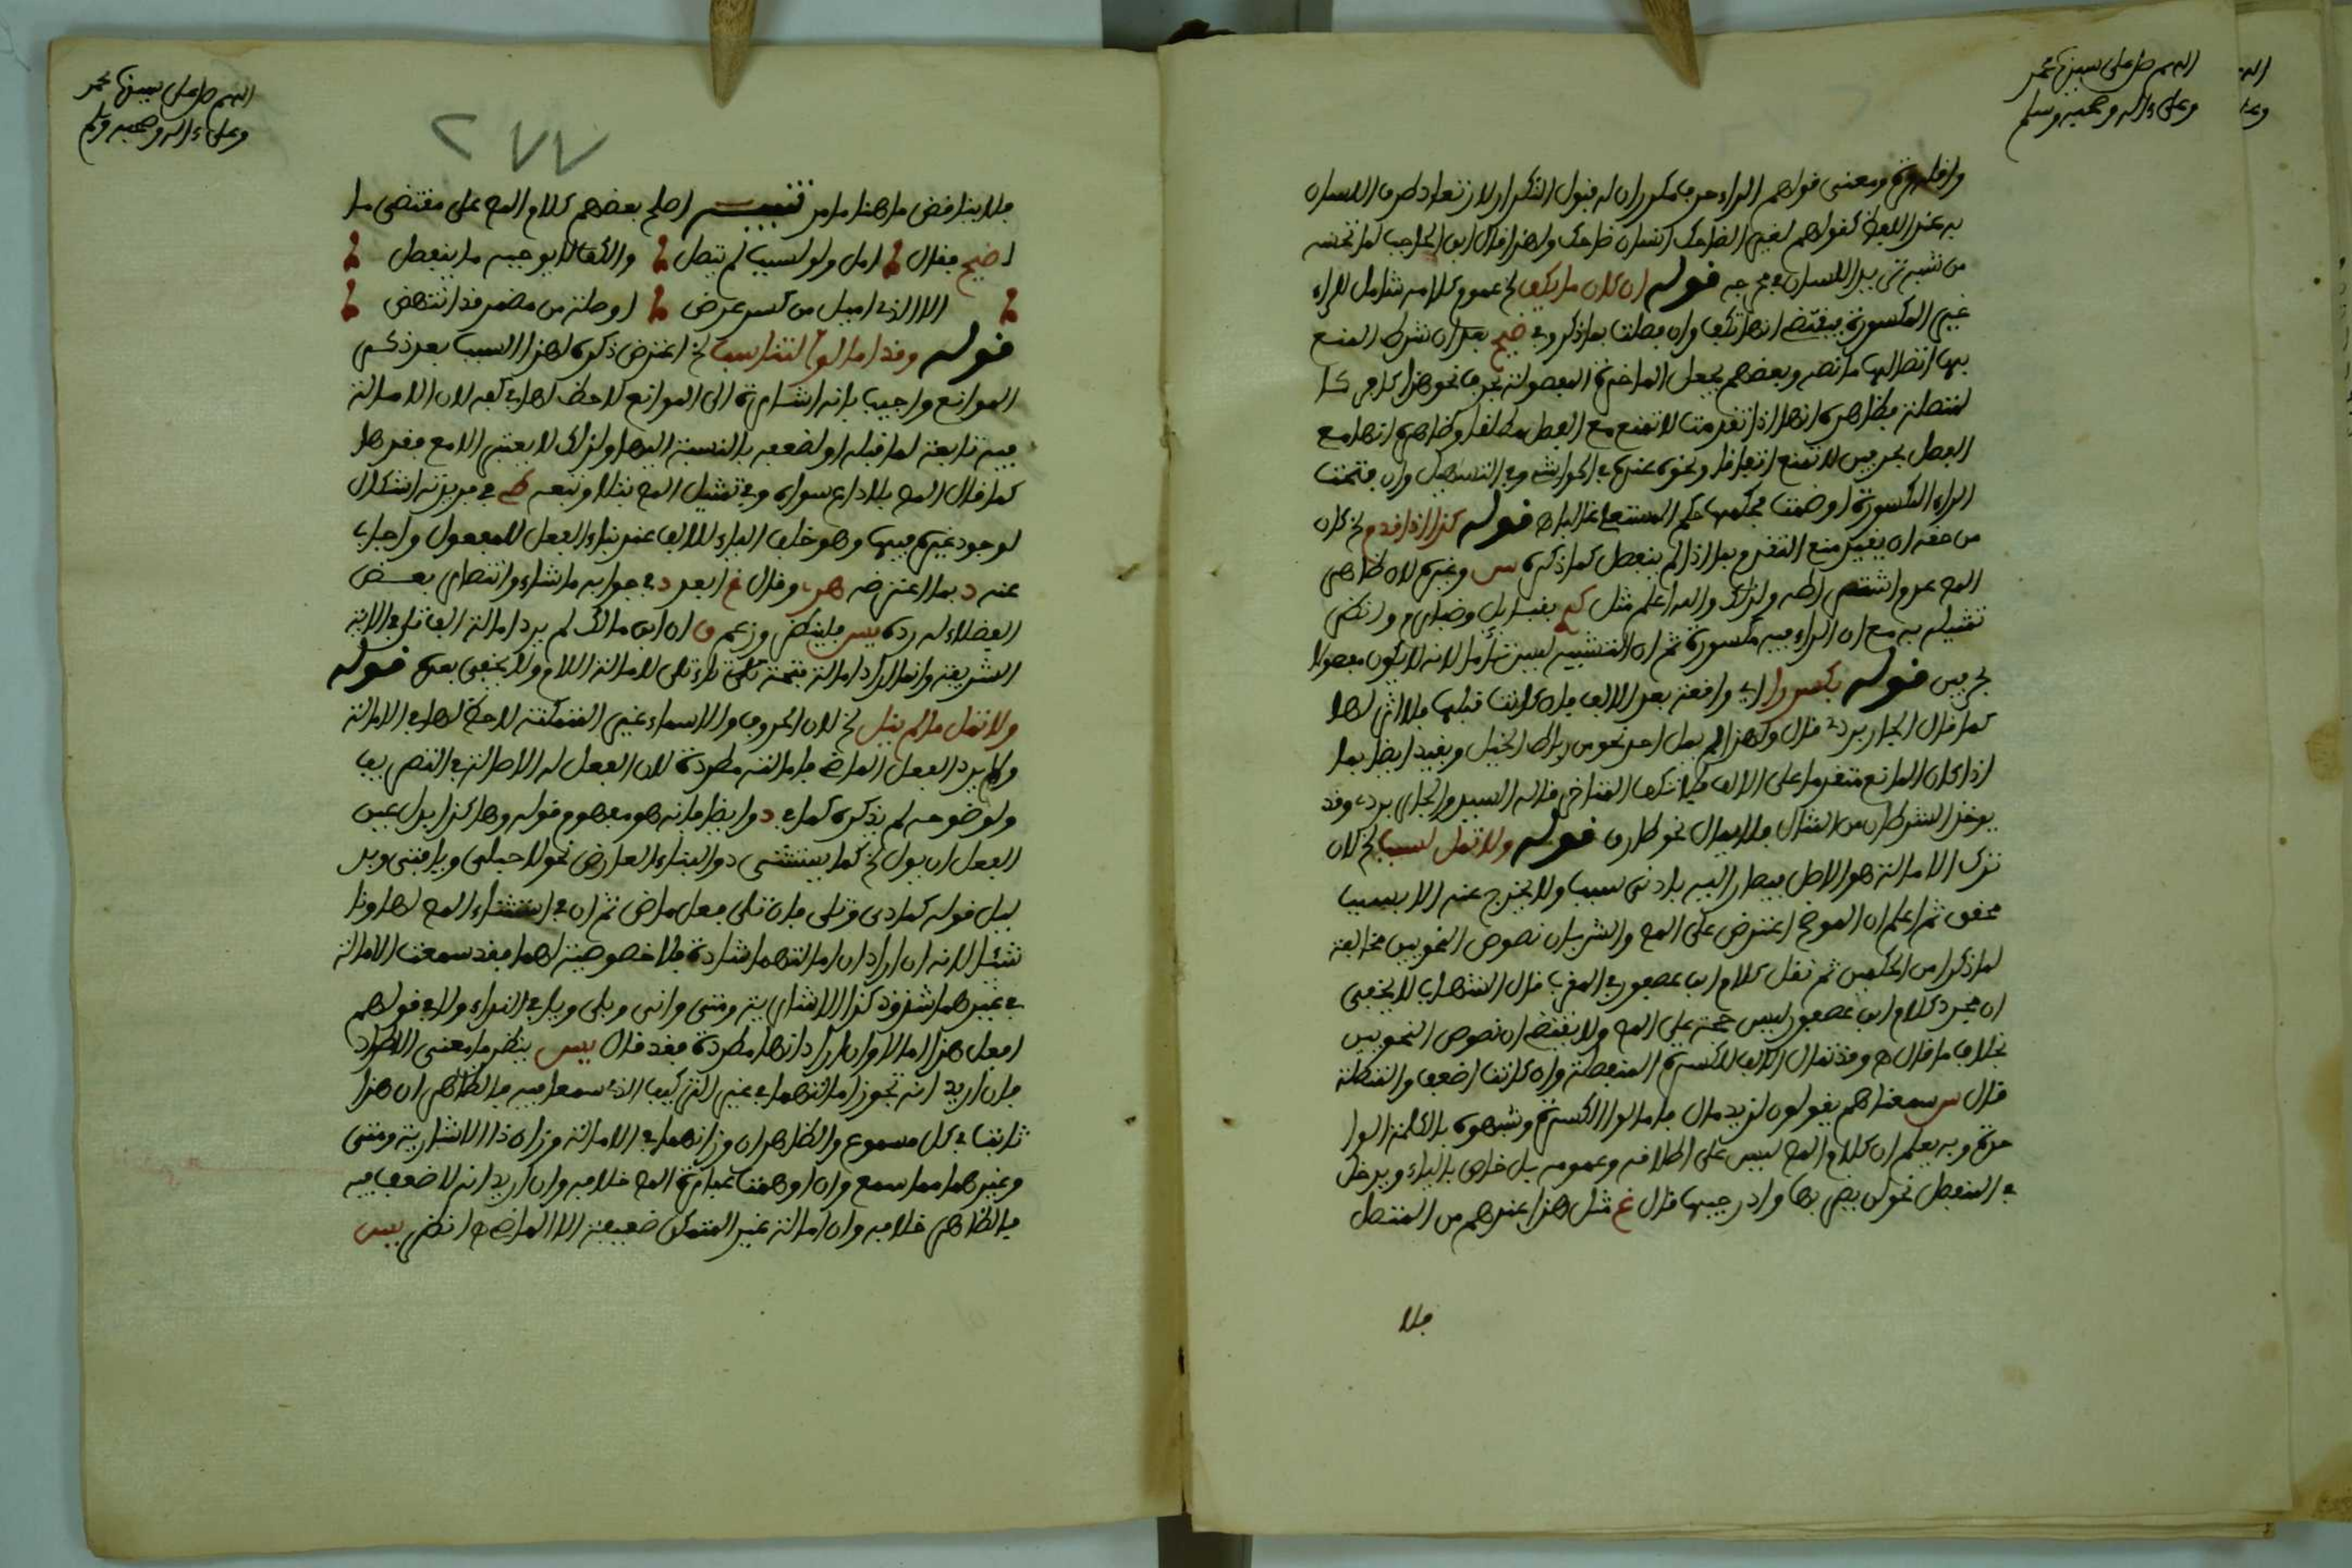 اللهم صل على سيدنا محمد
وعلى ءاله وصحبه وسلم
ومعنى قولهم الراء حرف مكرر ان له قبول التكرار لارتعاد طرف اللسان
به عند اللفظ كقولهم لغير الضاحك انسان ضاحك وهذا قال ابن الحاجب لما تحسه
من شبه ترديد اللسان في مخرجه قوله ان كان ما يكف الخ عموم كلامه شامل للراء
غير المكسورة فيقتضي انها تكف وان فصلت بما ذكر وفي ضيح بعد ان شرط المنع
بها اتصالها ما نصه وبعضهم يجعل الماخرة المفصولة بحرف نحو هذا كافر كا
لمتصلة فظاهره انها اذا تقدمت لا تمنع مع الفصل مطلقا وظاهره انها مع
الفصل بحرفين لا تمنع اتفاقا ونحوه عنده في الحواشي وفي التسهيل وان فتحت
الراء المكسورة او ضمت فحكمها حكم المستعلي غالبا ه قوله كذا اذا قدم الخ كان
من حقه ان يقيد منع التقدم بما اذا لم ينفصل كما ذكره س وغيره لان ظاهر
تمثيله به مع ان الراء فيه مكسورة ثم ان التشبيه ليس تاما لانه لا يكون مفصولا
بحرفين قوله بكسر را اي واقعة بعد الالف فان كانت قبلها فلا اثر لها
كما قال الجاربردي قال ولهذا لم يمل احد نحو من رباط الخيل ويقيد ايضا بما
اذا كان المانع متقدما على الالف فلا تكف المتاخر قاله السيد والجاربردي وقد
يوخذ الشرطان من المثال فلا يمال نحو طارق قوله ولا تمل لسبب الخ لان
ترك الامالة هو الاصل فيصار اليه بادنى سبب ولا يخرج عنه الا بسبب
محقق ثم اعلم ان الموضح اعترض على المص والشر بان نصوص النحويين مخالفة
لما ذكرا من الحكمين ثم نقل كلام ابن عصفور في المقرب قال الشهاب لا يخفى
ان مجرد كلام ابن عصفور ليس حجة على المص ولا يقتضي ان نصوص النحويين
بخلاف ما قال ه وقد تمال الالف للكسرة المنفصلة وان كانت اضعف والمتصلة
قال س سمعناهم يقولون لزيد مال فامالوا للكسرة وشبهوه بالكلمة الوا
حدة وبه يعلم ان كلام المص ليس على اطلاقه وعمومه بل خاص بالياء ويدخل
في المنفصل نحو لن يضربها وادر جيبها قال غ مثل هذا عندهم من المتصل
فلا
اللهم صل على سيدنا محمد
وعلى ءاله وصحبه وسلم
٢٧٧
فلا يناقض ما هنا ما مر تنبيـــه اصلح بعضهم كلام المص على مقتضى ما
ا ضيح فقال امل ولو لسبب لم يتصل والكف لا يوجبه ما ينفصل
الا الذي اميل من كسر عرض او صلة من مضمر قد انتهض
قوله وقد امالوا لتناسب الخ اعترض ذكره لهذا السبب بعد ذكر
الموانع واجيب بانه اشارة الى ان الموانع لا حظ لها في كفه لان الامالة
فيه تابعة لما قبله او لضعفه بالنسبة اليها ولذلك لا يعتبر الا مع فقدها
كما قال المص بلا داع سواه وفي تمثيل المص بتلا وتبعه كم في مريته اشكال
لوجود غيره فيها وهو خلف الياء للالف عند بناء الفعل للمفعول واجاب
عنه د بما اعترضه هو وقال غ ابعد د في جوابه ما شاء وانتصار بعض
الفضلاء له رده يس فلينظر وزعم ق ان ابن مالك لم يرد امالة الف تلا في الاية
الشريفة وانما اراد امالة فتحة تاء تلى لامالة اللام ولا يخفى بعده قوله
ولا تمل ما لم ينل الخ لان الحروف والاسماء غير المتمكنة لا حظ لها في الامالة
ولم يرد الفعل الماضي فامالته مطردة لان الفعل له الاصالة في التصريف
ولوضوحه لم يذكره كما في د وايضا فانه هو مفهوم قوله وهاكذا بدل عين
الفعل ان يول الخ كما يستثنى ذو البناء العارض نحو لا حبلى ويا فتى وبد
ليل قوله كمادى وتلى فان تلى فعل ماض ثم ان في استثناء المص لها ونا
شئا لانه ان اراد ان امالتهما شاذة فلا خصوصية لهما فقد سمعت الامالة
في غيرهما شذوذا كذا الاشارية ومتى وانى وبلى ويا في النداء ولا في قولهم
افعل هذا امالا وان اراد انها مطردة فقد قال يس ينظر ما معنى الاطراد
فان اريد انه تجوز امالتهما في غير التركيب الذي سمعا فيه فالظاهر ان هذا
ثابت في كل مسموع والظاهر ان وزانهما في الامالة وزان ذا الاشارية ومتى
وغيرهما مما سمع وان اوهمت عبارة المص خلافه وان اريد انه لا ضعف فيه
فالظاهر خلافه وان امالة غير المتمكن ضعيفة الا الماضي ه انظر يس